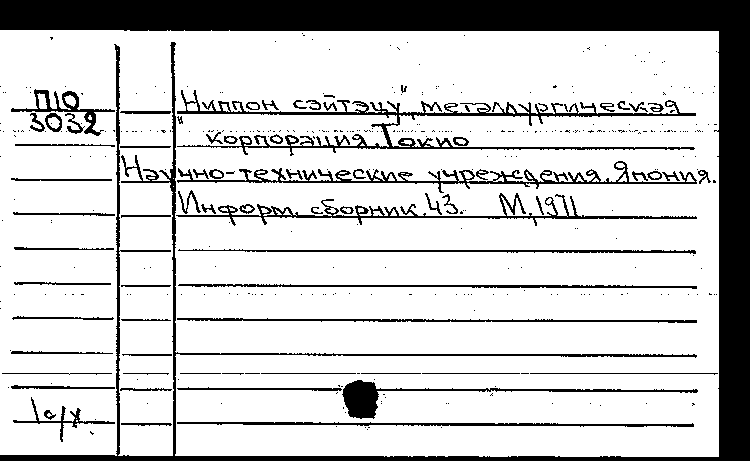 П10
3032
"Ниппон сэйтэцу", металлургическая
корпорация. Токио
Научно-технические учреждения. Япония.
Информ. сборник. 43. М, 1971